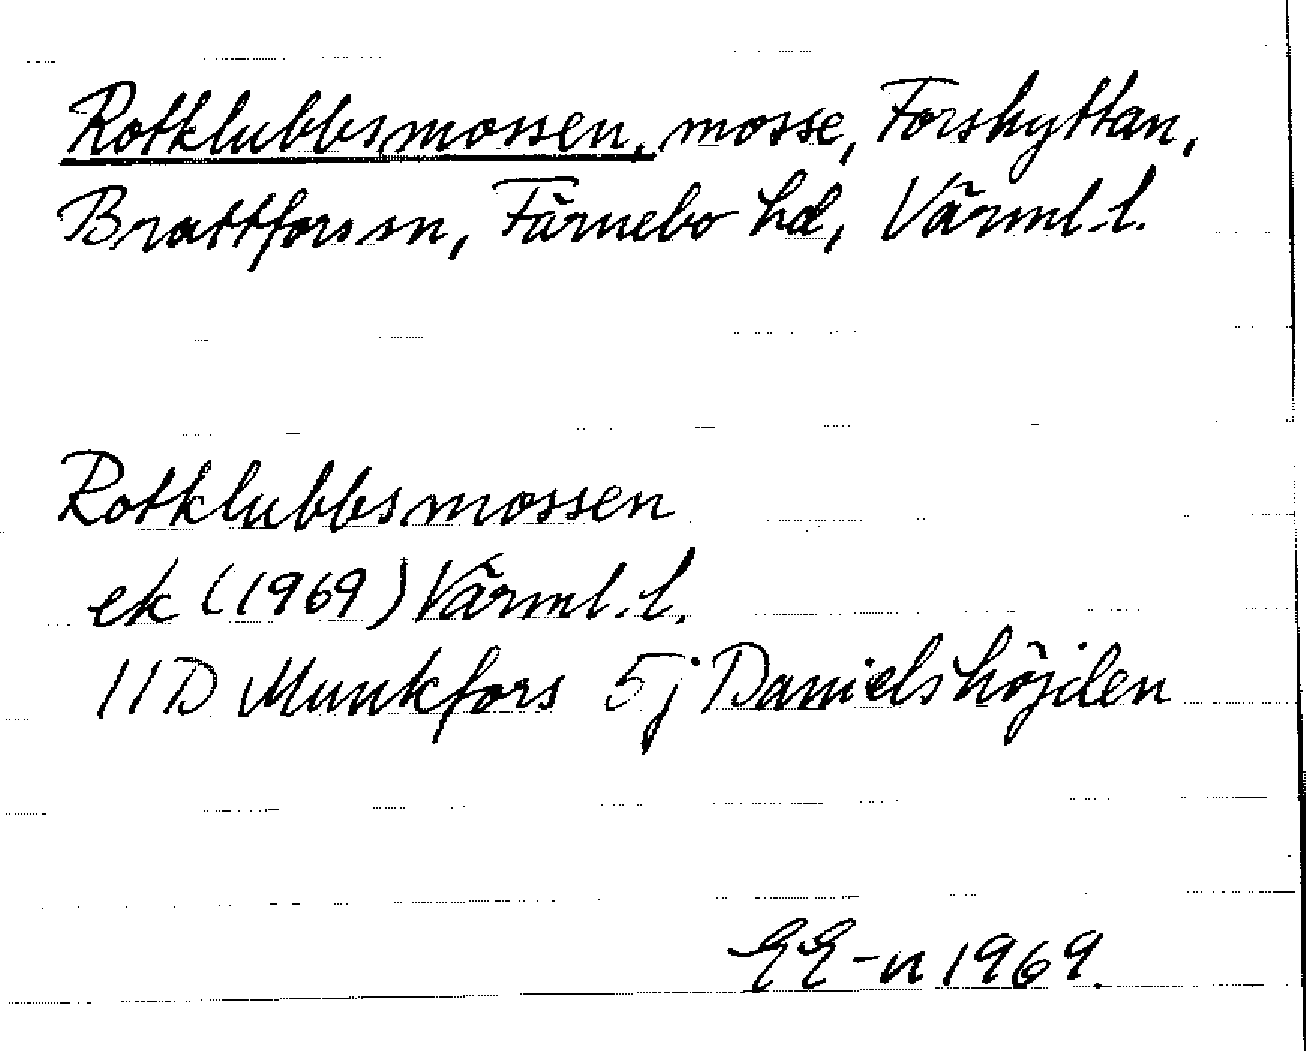 Rotklubbsmossen, mosse, Forshyttan,
Brattfors sn, Färnebo hd, Värml. l.
Rotklubbsmossen
ek (1969) Värml. l.
11D Munkfors 5j Danielshöjden
EE-n 1969.